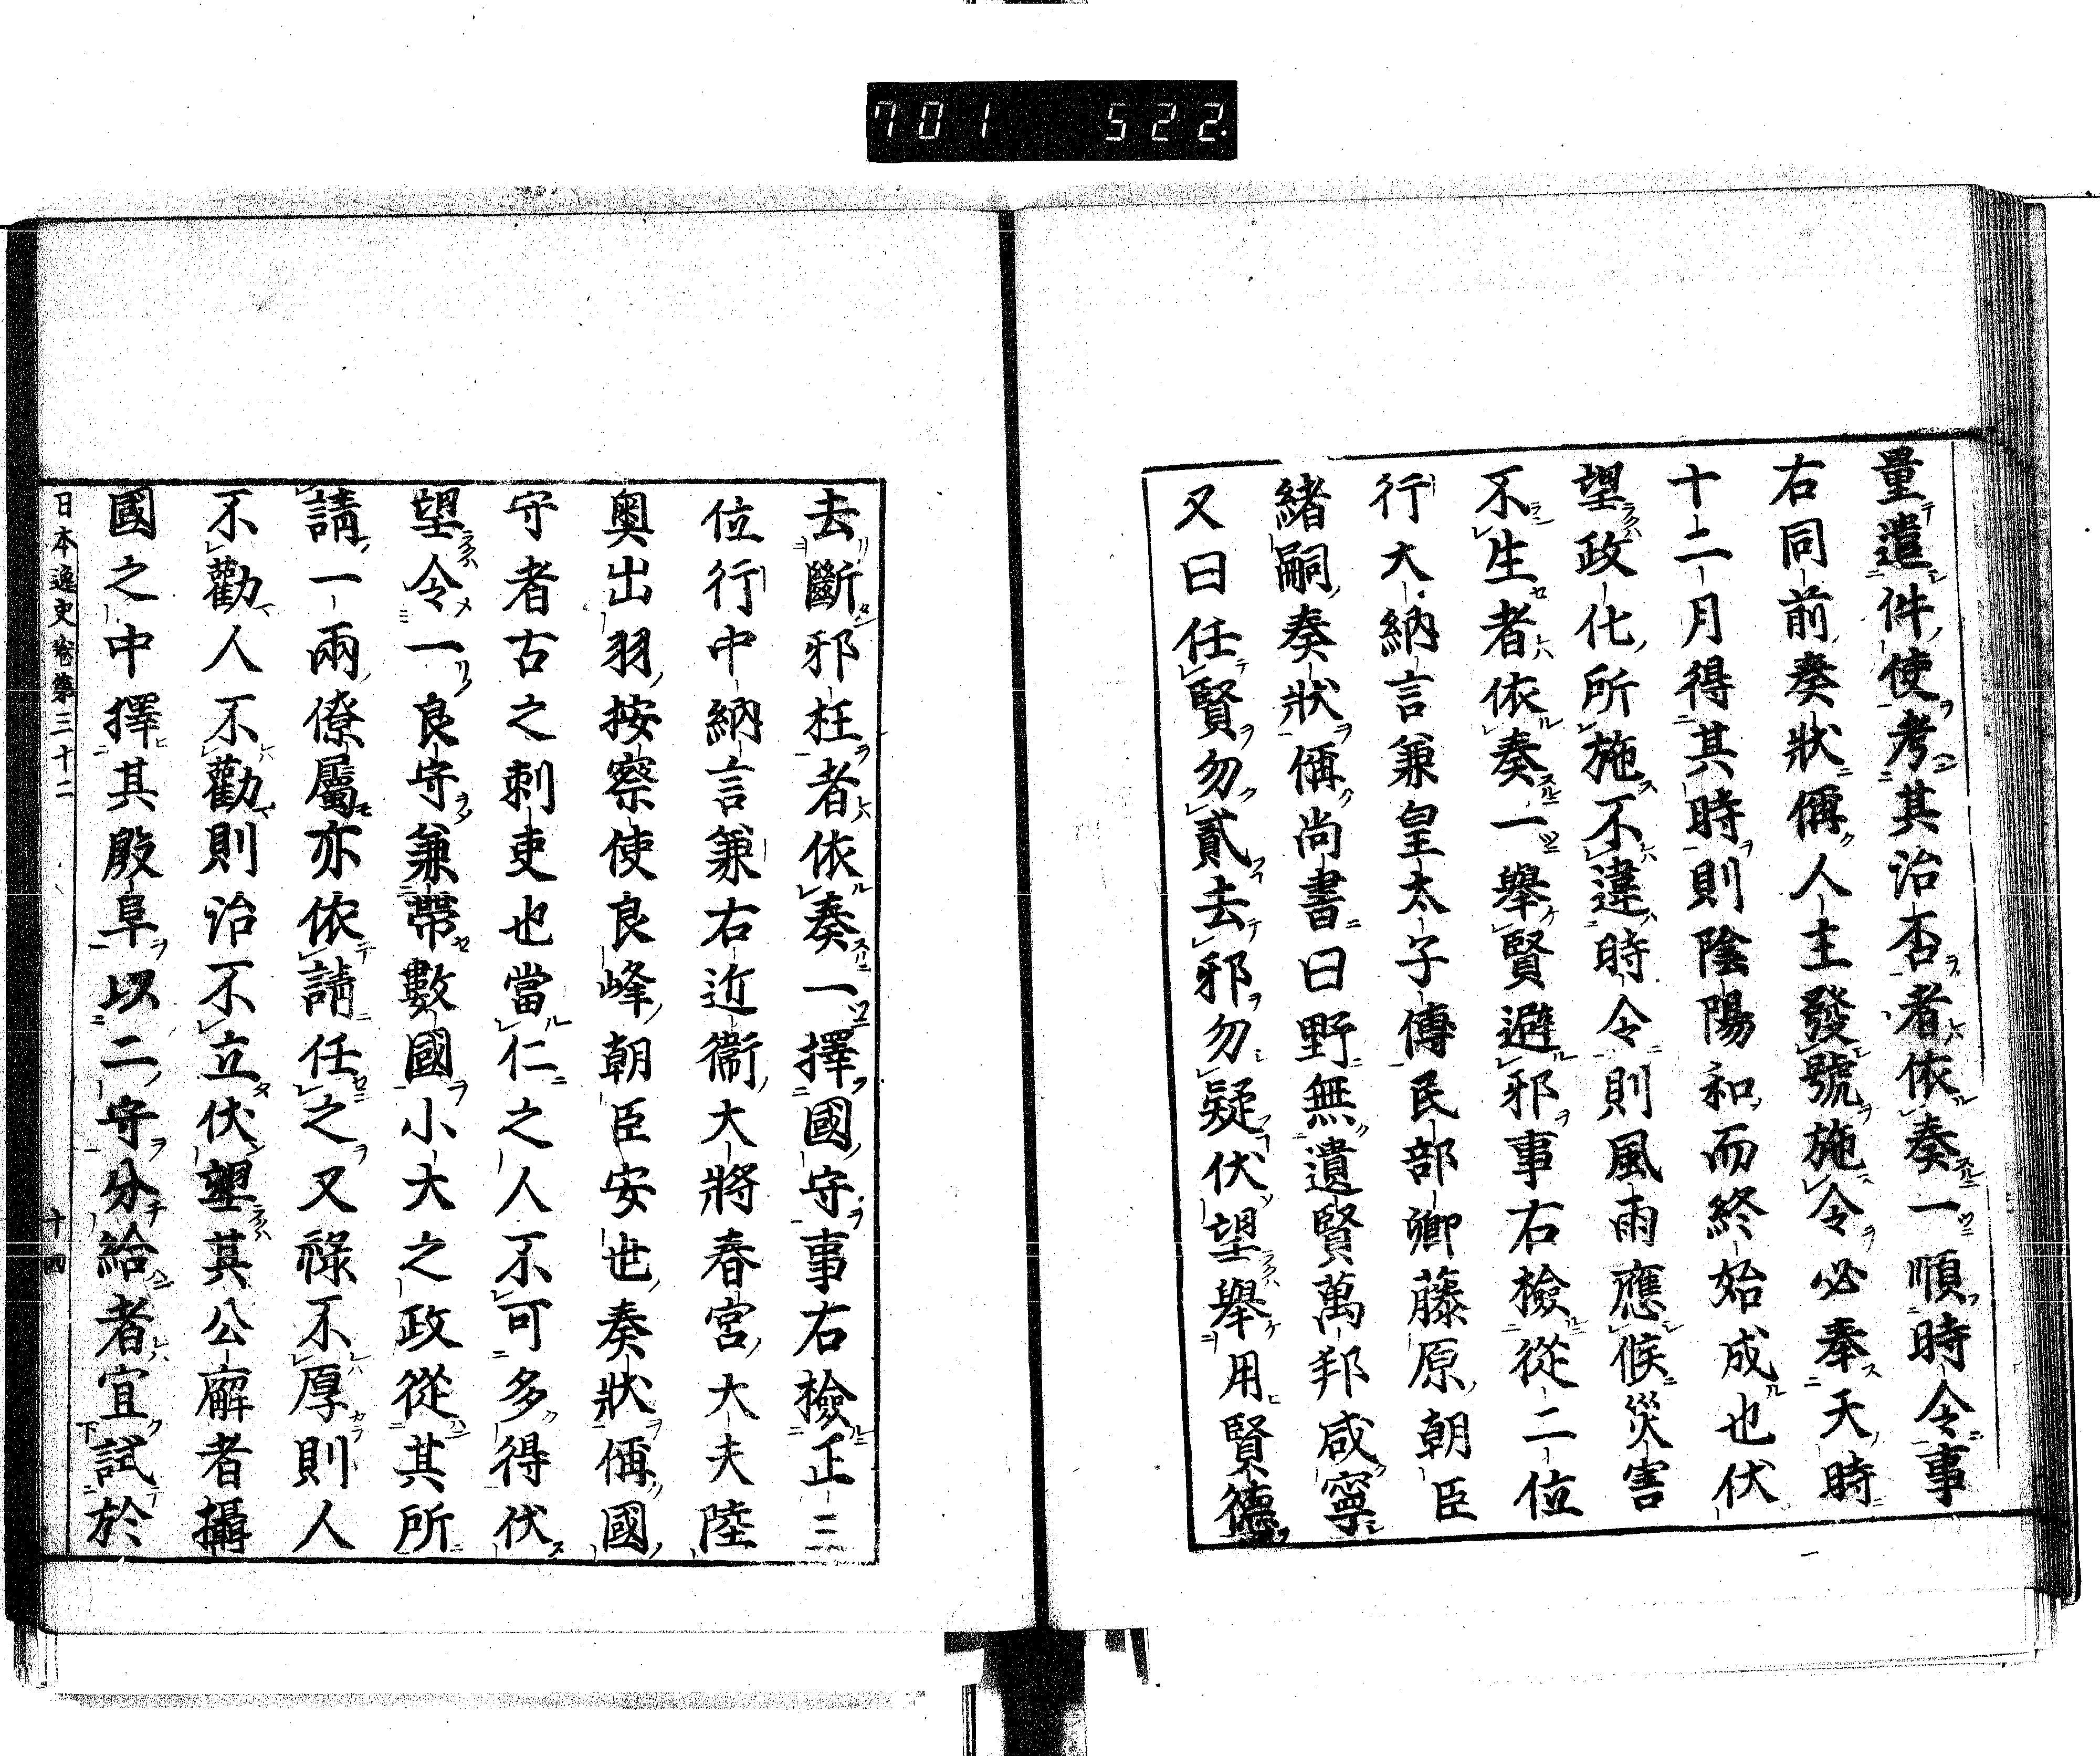 701 522
量遣件使考其治否者依奏一順時令事
右同前奏狀偁人主發號施令必奉天時
十二月得其時則陰陽和而終始成也伏
望政化所施不違時令則風雨應候災害
不生者依奏一舉賢避邪事右檢從二位
行大納言兼皇太子傅民部卿藤原朝臣
緒嗣奏狀偁尚書曰野無遺賢萬邦咸寧
又曰任賢勿貳去邪勿疑伏望舉用賢德
去斷邪枉者依奏一擇國守事右檢正三
位行中納言兼右近衞大將春宮大夫陸
奧出羽按察使良峰朝臣安世奏狀偁國
守者古之刺吏也當仁之人不可多得伏
望令一良守兼帶數國小大之政從其所
請一兩僚屬亦依請任之又祿不厚則人
不勸人不勸則治不立伏望其公廨者攝
國之中擇其殷阜以二守分給者宜試於
日本逸史卷第三十二
十四